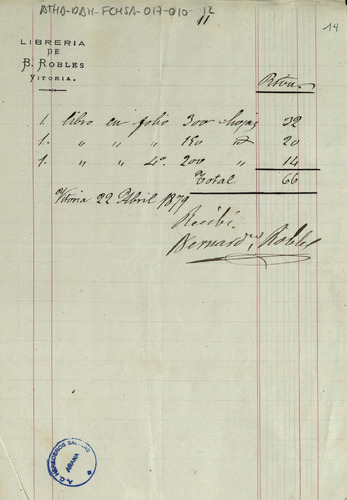 ATHA-DAH-FCHSA-017-010-12
11
14
LIBRERIA
DE
B. ROBLES
VITORIA.
Rvon.
1. libro en folio 300 hojas 32
1. " " " 150 id 20
1. " " 4º. 200 " 14
Total 66
Vitoria 22 Abril 1879
Recibí.
Bernardo Robles
A.C. HEREDEROS SALINAS
AÑANA